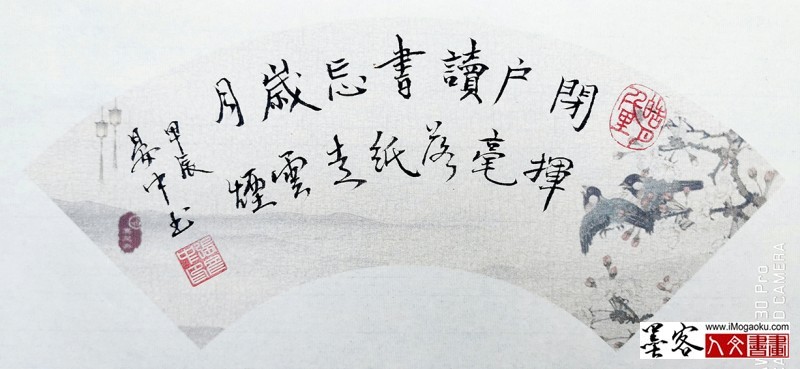 閉户讀書忘歲月
揮毫落紙走雲煙
甲辰
中书
墨客
www.iMogaoku.com
人文書畫
30 Pro
CAMERA